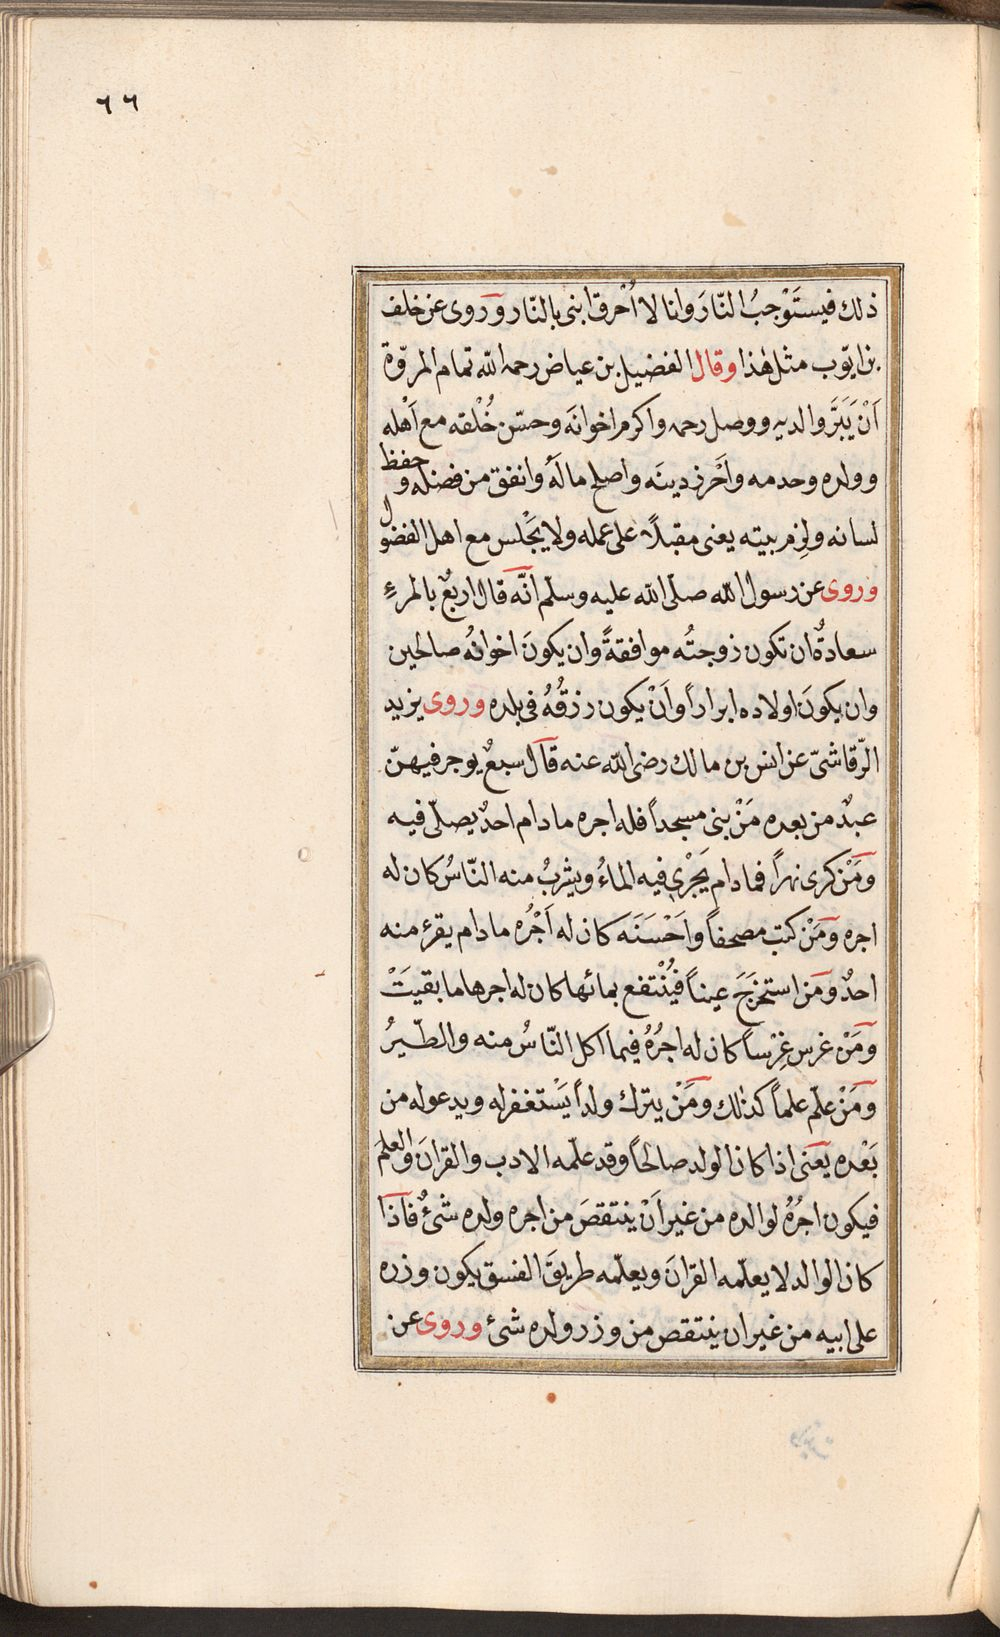 ٦٦
ذلك فيستَوْجبُ النّارَ وانا لا اُحْرق ابنى بالنّار وروى عن خلف
بن ايّوب مثل هٰذا وقال الفضيل بن عياض رحمه الله تمام المرّوة
اَنْ يَبَرَّ والديه ووصل رحمه واكرم اخوانَه وحسّن خُلْقه مع اَهْله
وولده وحدمه واَحْرز دينَه واصلح مالَهُ وانفق من فضله وحفظ
لسانه ولزم بيته يعنى مقبلًا على عمله ولا يَجْلس مع اهل الفضول
وروى عن رسول الله صلّى الله عليه وسلّم انّه قال اربعٌ بالمرءِ
سعادةٌ ان تكون زوجتُه موافقةً وان يكونَ اخوانُه صالحين
وان يكونَ اولاده ابراراً واَنْ يكون رزقُهُ فى بلده وروى يزيد
الرّقاشىّ عن انس بن مالك رضى الله عنه قال سبعٌ يوجر فيهنّ
عبدٌ من بعده مَنْ بنى مسجداً فله اجره ما دام احدٌ يصلّى فيه
ومَنْ كرى نهراً فما دام يَجْرى فيه الماءُ ويشربُ منه النّاسُ كان له
اجره ومَنْ كتب مصحفاً واَحْسَنَه كان له اَجْرُه ما دام يقرء منه
احدٌ ومَن استخرَجَ عيناً فيُنْتفع بمائها كان له اجرها ما بقيَتْ
ومَنْ غرس غِرْساً كان له اجرُهُ فيما اكل النّاسُ منه والطّيرُ
ومَنْ علّم علماً كذٰلك ومَنْ يترك ولداً يَسْتغفر له ويدعو له من
بَعْده يَعنى اذا كان الولد صالحاً وقد علّمه الادب والقرانَ والعلمَ
فيكون اجرُهُ لوالده من غير اَنْ ينتقصَ من اجره ولده شىءٌ فاذا
كان الوالد لا يعلّمه القرانَ ويعلّمه طريقَ الفسق يكون وزره
على ابيه من غير ان ينتقص من وزر ولده شئ وروى عن